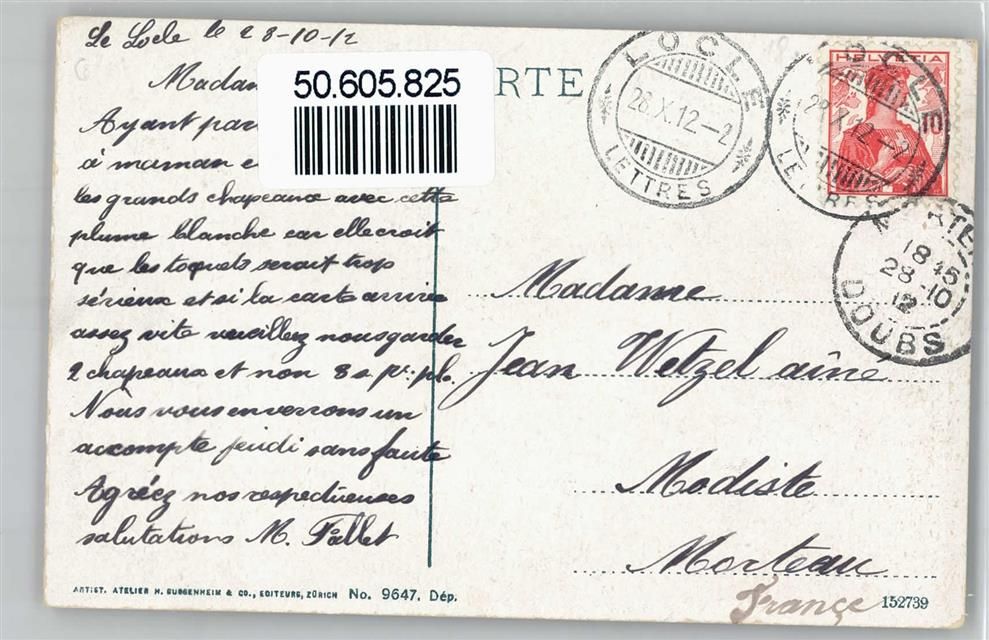 Le Locle le 28-10-12
Madam
50.605.825
RTE
Ayant par
à maman e
les grands chapeaux avec cette
plume blanche car elle croit
que les toquets serait trop
sérieux et si la carte arrive
assez vite veuillez nous garder
2 chapeaux et non 3 s.v.pl.
Nous vous enverrons un
accompte jeudi sans faute
Agréez nos respectueuses
salutations M. Fallet
LOCLE
28.X.12–2
LETTRES
HELVETIA
LOCLE
28.X.12–2
LETTRES
MORTEAU
18 45
28-10
12
DOUBS
Madame
Jean Wetzel aîné
Modiste
Morteau
France
ARTIST. ATELIER H. GUGGENHEIM & CO., EDITEURS, ZÜRICH No. 9647. Dép.
152739